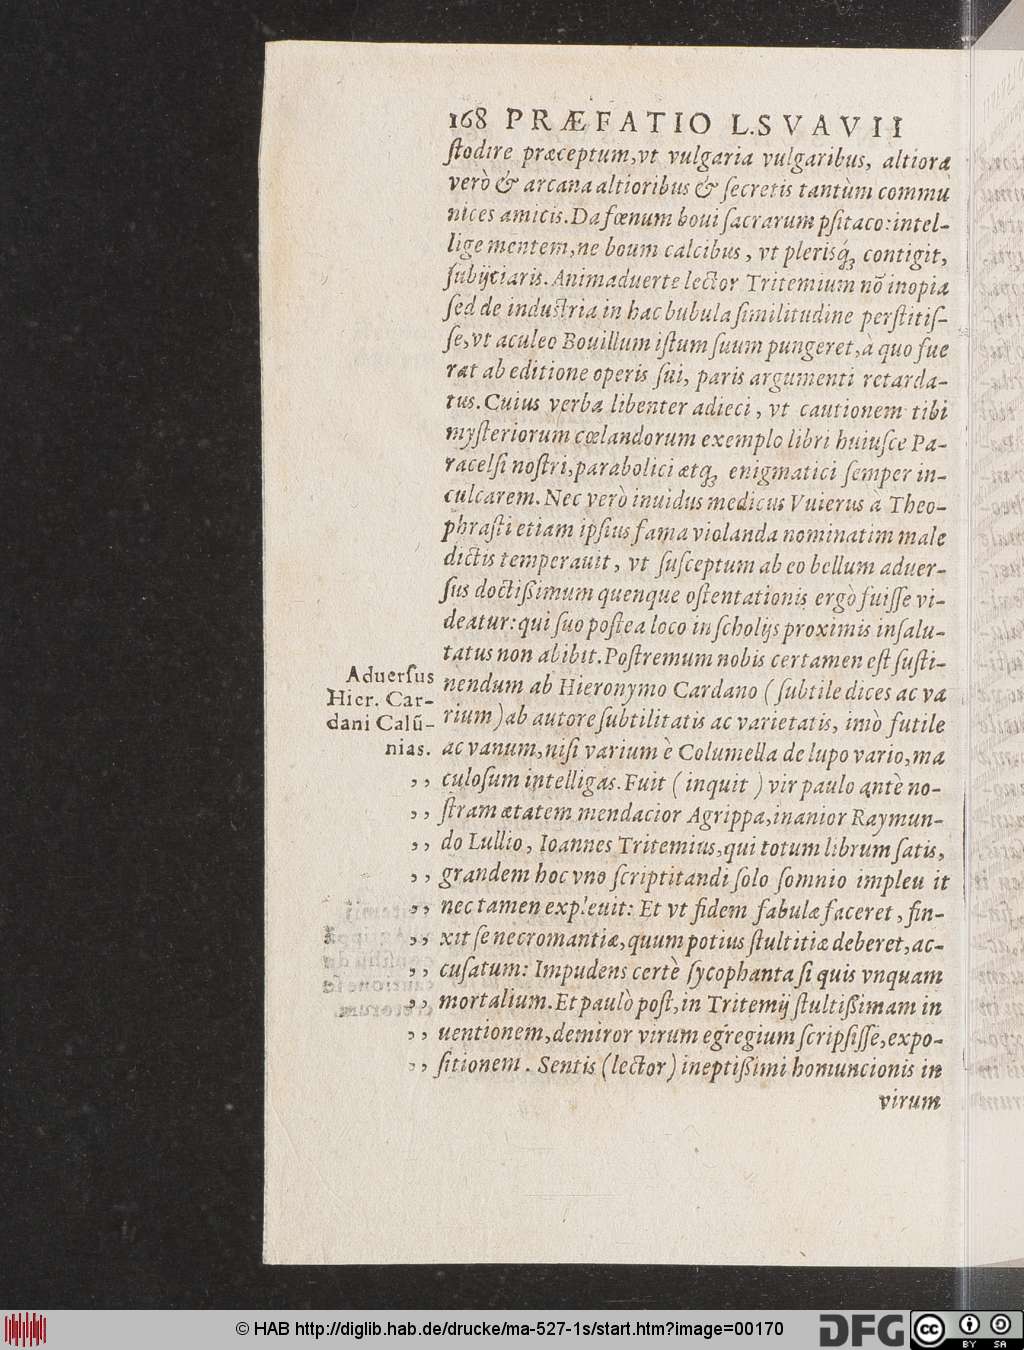 168 PRÆFATIO L. SVAVII
ſtodire præceptum, vt vulgaria vulgaribus, altiora
verò & arcana altioribus & ſecretis tantùm commu
nices amicis. Da fœnum boui ſacrarum pſitaco: intel-
lige mentem, ne boum calcibus, vt pleriſq́ꝫ contigit,
ſubijciaris. Animaduerte lector Tritemium nõ inopia
ſed de induſtria in hac bubula ſimilitudine perſtitiſ-
ſe, vt aculeo Bouillum iſtum ſuum pungeret, à quo fue
rat ab editione operis ſui, paris argumenti retarda-
tus. Cuius verba libenter adieci, vt cautionem tibi
myſteriorum cœlandorum exemplo libri huiuſce Pa-
racelſi noſtri, parabolici ætqꝫ enigmatici ſemper in-
culcarem. Nec verò inuidus medicus Vuierus à Theo-
phraſti etiam ipſius fama violanda nominatim male
dictis temperauit, vt ſuſceptum ab eo bellum aduer-
ſus doctißimum quenque oſtentationis ergo fuiſſe vi-
deatur: qui ſuo poſtea loco in ſcholijs proximis inſalu-
tatus non abibit. Poſtremum nobis certamen eſt ſuſti-
Aduerſus
Hier. Car-
dani Calũ-
nias.
nendum ab Hieronymo Cardano (ſubtile dices ac va
rium) ab autore ſubtilitatis ac varietatis, imò futile
ac vanum, niſi varium è Columella de lupo vario, ma
,, culoſum intelligas. Fuit (inquit) vir paulo antè no-
,, ſtram ætatem mendacior Agrippa, inanior Raymun-
,, do Lullio, Ioannes Tritemius, qui totum librum ſatis,
,, grandem hoc vno ſcriptitandi ſolo ſomnio impleu it
,, nec tamen expleuit: Et vt fidem fabulæ faceret, fin-
,, xit ſe necromantiæ, quum potius ſtultitiæ deberet, ac-
,, cuſatum: Impudens certè ſycophanta ſi quis vnquam
,, mortalium. Et paulò poſt, in Tritemij ſtultißimam in
,, uentionem, demiror virum egregium ſcripſiſſe, expo-
,, ſitionem. Sentis (lector) ineptißimi homuncionis in
virum
© HAB http://diglib.hab.de/drucke/ma-527-1s/start.htm?image=00170
DFG
cc BY SA